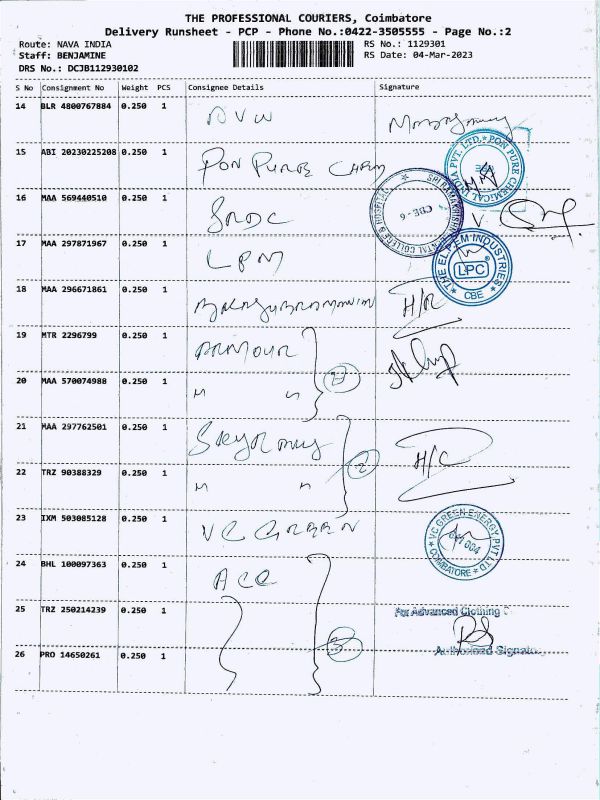 THE PROFESSIONAL COURIERS, Coimbatore
Delivery Runsheet - PCP - Phone No.:0422-3505555 - Page No.:2
Route: NAVA INDIA RS No.: 1129301
Staff: BENJAMINE RS Date: 04-Mar-2023
DRS No.: DCJB112930102
S No Consignment No Weight PCS Consignee Details Signature
14 BLR 4800767884 0.250 1
15 ABI 20230225208 0.250 1 PON PURE CHEM
PON PURE CHEMICAL INDIA PVT. LTD.
16 MAA 569440510 0.250 1 SRDC
COLLEGE & HOSPITAL
CBE - 6
17 MAA 297871967 0.250 1 LPM
THE EL.PE.M INDUSTRIES
LPC
CBE
18 MAA 296671861 0.250 1 H/R
19 MTR 2296799 0.250 1 ARMOUR
20 MAA 570074988 0.250 1 2
21 MAA 297762501 0.250 1 H/C
22 TRZ 90388329 0.250 1 2
23 IXM 503085128 0.250 1 VC GREEN
VC GREEN ENERGY PVT LTD
COIMBATORE
24 BHL 100097363 0.250 1 ACC
25 TRZ 250214239 0.250 1 For Advanced Clothing
26 PRO 14650261 0.250 1 3 Authorised Signatory